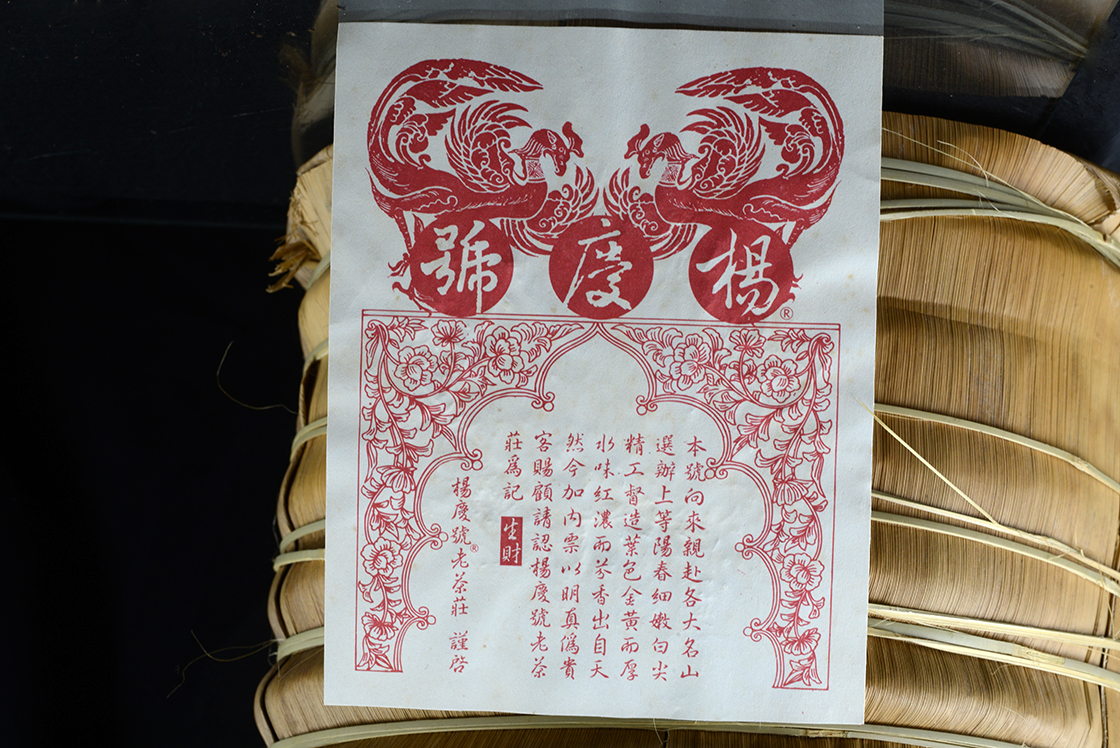 楊慶號®
本號向來親赴各大名山
選辦上等陽春細嫩白尖
精工督造葉色金黃而厚
水味紅濃而芬香出自天
然今加內票以明真偽貴
客賜顧請認楊慶號老茶
莊為記 生財
楊慶號®老茶莊 謹啓